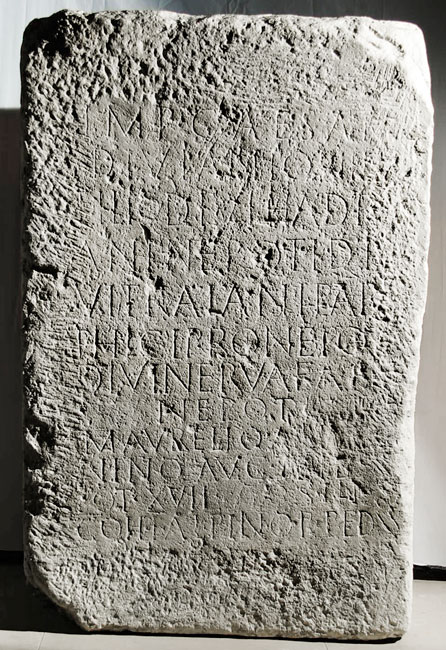 IMP CAESA
DIVI
FIL DIVI HADR
ANI NEPOTI DI
VI TRAIANI PAR
THICI PRONEPO
DIVI NERVAE AB
NEPOT
M AVRELIO
NINO AVG
OT XVII
COH I ALPINOR PED